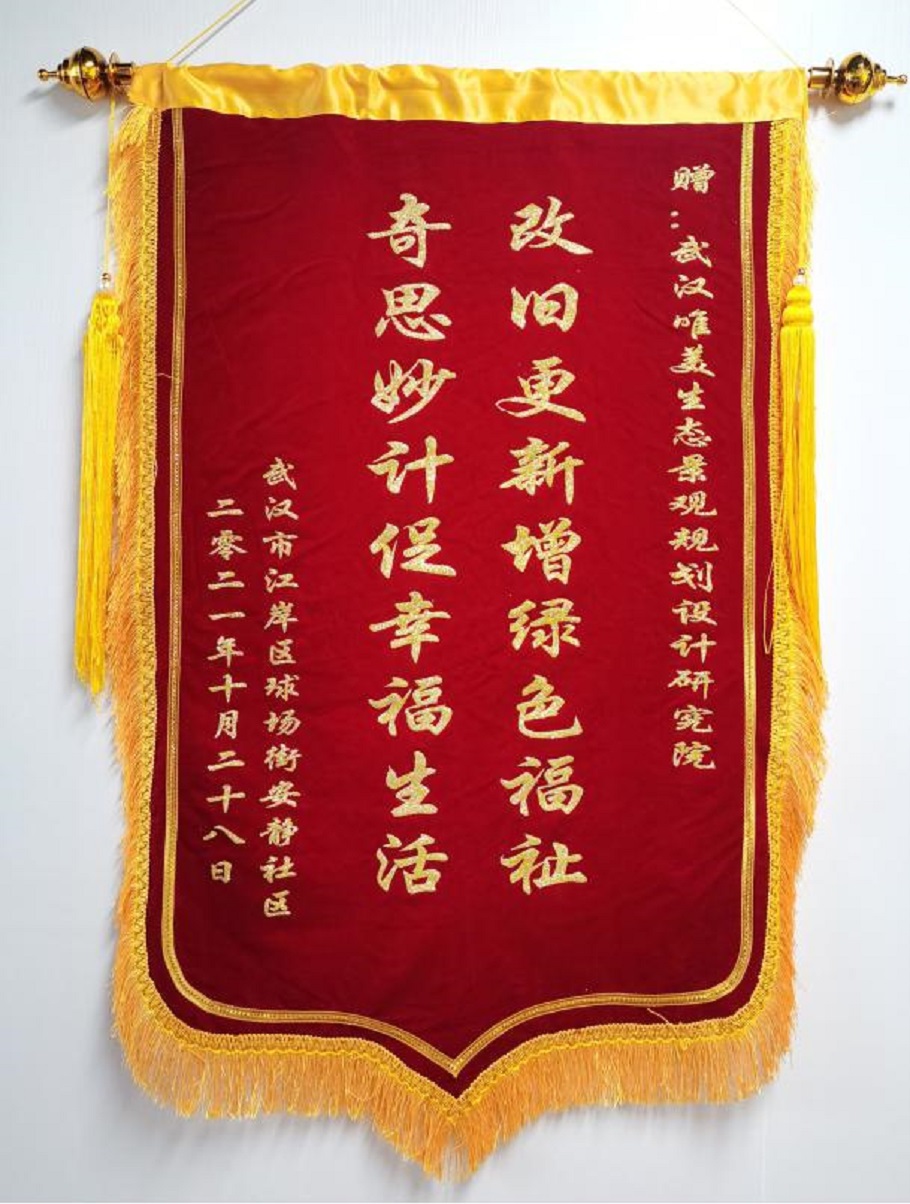 赠：武汉唯美生态景观规划设计研究院
改旧更新增绿色福祉
奇思妙计促幸福生活
武汉市江岸区球场街安静社区
二零二一年十月二十八日